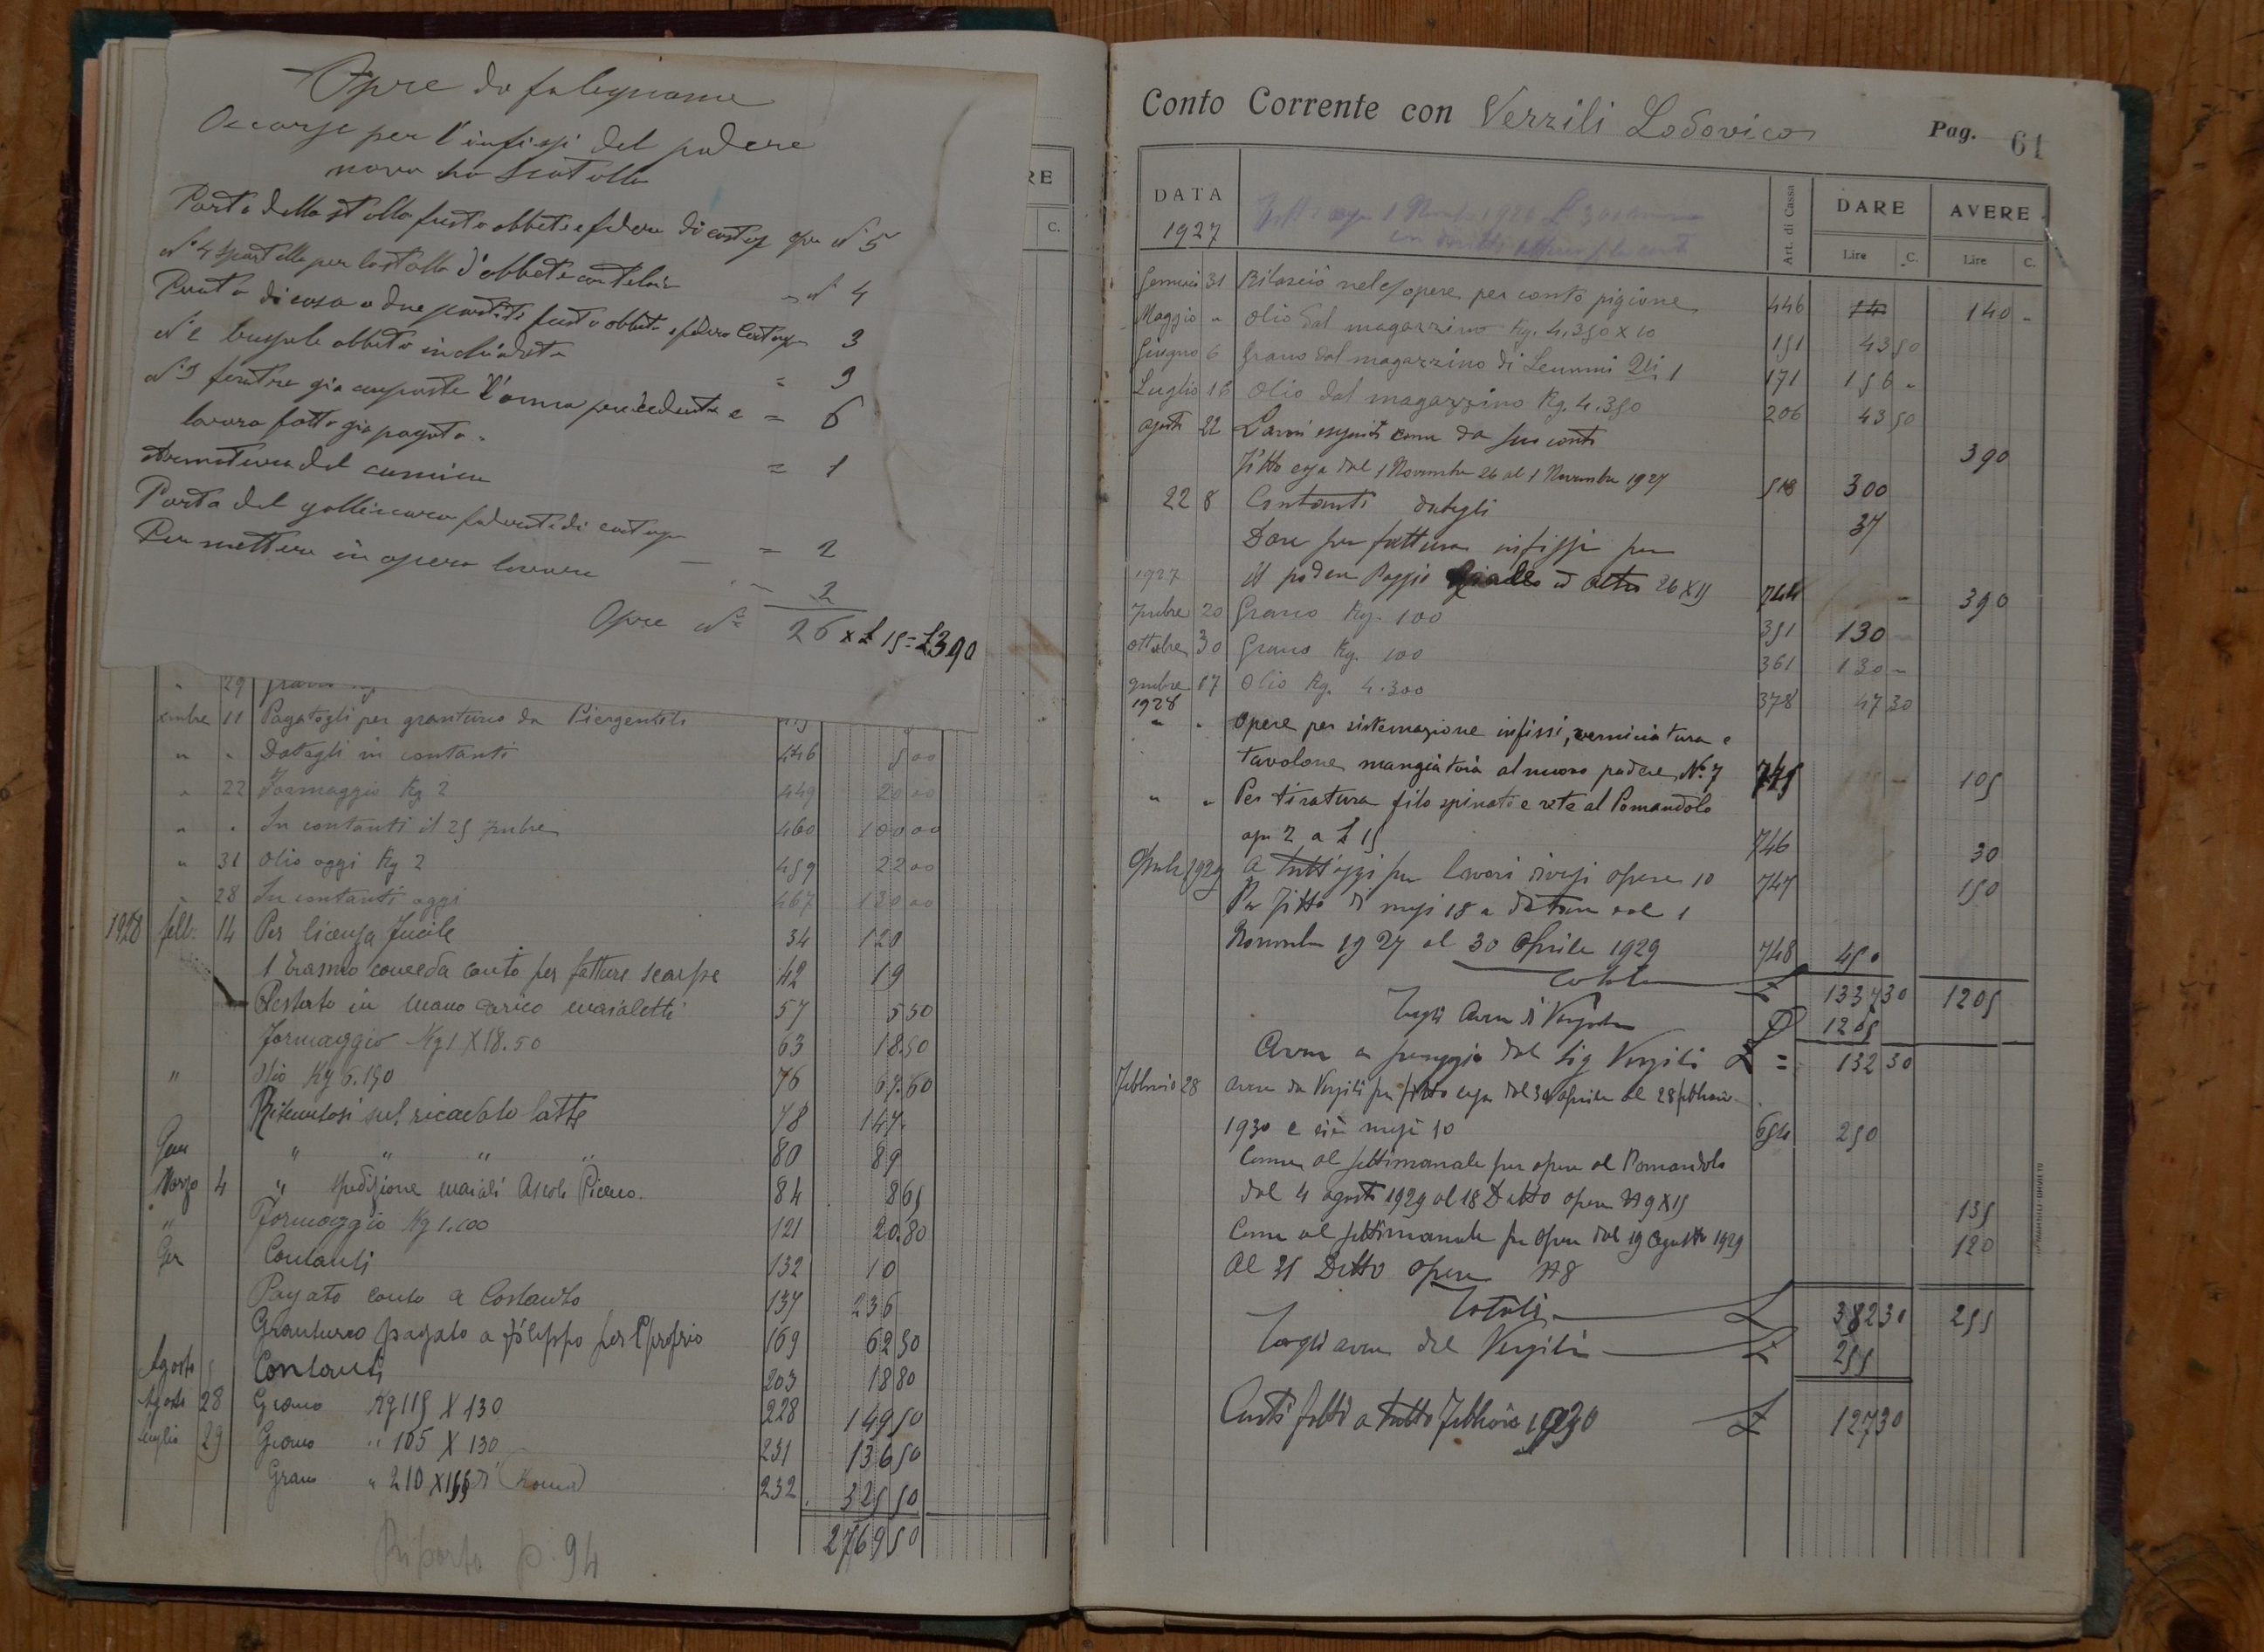 Opre da falegname
Occorse per l'infissi del podere
novo ha
Porta della stalla fusto abbete e fodera di castag opre N° 5
N° 4 sportelle per la stalla d'abbete con telaio = N° 4
Porta di casa a due partite fusto abbete e fodera Castag 3
N° 2 abbete inchiodate = 3
N° 3 fenetre gia composte l'anno precedente e = 6
lavoro fatto gia pagato.
Armatura del camino = 1
Porta del gallinaro foderata di castagn = 2
Per mettere in opera lavoro - 2
Opre N° 26 x £ 15 = £390
" 29
Xmbre 11 Pagatogli per granturco da Piergentili
" " Datogli in contanti 446 5 00
" 22 Formaggio Kg 2 449 20 00
" " In contanti il 25 460 100 00
" 31 Olio oggi Kg 2 459 22 00
" 28 In contanti oggi 467 130 00
1928 febb. 14 Per licenza fucile 34 120
conto per fatture scarpe 42 19
in mano 57 5 50
Formaggio Kg 1 X 18.50 63 18.50
" Olio Kg 6.150 76 67.60
Ritenutosi sul ricavato latte 78 147
Gen " " " " 80 89
Marzo 4 " spedizione maiali Ascoli Piceno. 84 865
" Formaggio Kg 1.600 121 20.80
Contanti 132 10
Pagato conto a Costanto 137 236
Granturco pagato a Filippo per 169 62 50
Agosto Contanti 203 18 80
Agosto 28 Grano Kg 115 X 130 228 149 50
Luglio 29 Grano " 105 X 130 231 136 50
Grano " 210 X 155 di (Roma) 232 325 50
2769 50
Riporto p. 94
RE
C.
Conto Corrente con Verzili Lodovico Pag. 61
DATA Art. di Cassa DARE AVERE
1927 Lire C. Lire C.
Gennaio 31 Rilasciò nelle opere per conto pigione 446 14 140 -
Maggio " Olio dal magazzino Kg. 4.350 x 10 151 43 50
Giugno 6 Grano dal magazzino di Leumni Qli 1 171 156 "
Luglio 16 Olio dal magazzino Kg. 4.350 206 43 50
agosto 22 Lavori eseguiti come da suo conto 390
Fitto casa dal 1 Novembre 26 al 1 Novembre 1927 518 300
22 8 Contanti datigli 37
Dare per fattura infissi per
1927 il podere Poggio ed altro 26 X 15 744 390
7mbre 20 Grano Kg. 100 351 130
ottobre 30 Grano Kg. 100 361 130 "
9mbre 17 Olio Kg. 4.300 378 47 30
1928
" " Opere per sistemazione infissi, verniciatura e
tavolone mangiatoia al nuovo podere N. 7 745 105
" " Per tiratura filo spinato e rete al Pomandolo
opre 2 a £ 15 746 30
Aprile 1929 A tutt'oggi per lavori diversi opere 10 747 150
Per fitto di mesi 18 a datare dal 1
Novembre 1927 al 30 Aprile 1929 748 450
Totale £ 1337 30 1205
Togli avere di Verzili £ 1205
Avere a pareggio dal Sig Verzili £ = 132 30
Febbraio 28 Avere da Verzili per fitto casa dal 30 Aprile al 28 febbraio
1930 e cioè mesi 10 654 250
Come al settimanale per opere al Pomandolo
dal 4 agosto 1929 al 18 Detto opere N 9 X 15 135
Come al settimanale per opere dal 19 Agosto 1929 120
Al 31 Detto opere N 8
Totali £ 382 30 255
Togli avere del Verzili £ 255
Conti fatti a tutto Febbraio 1930 £ 127 30